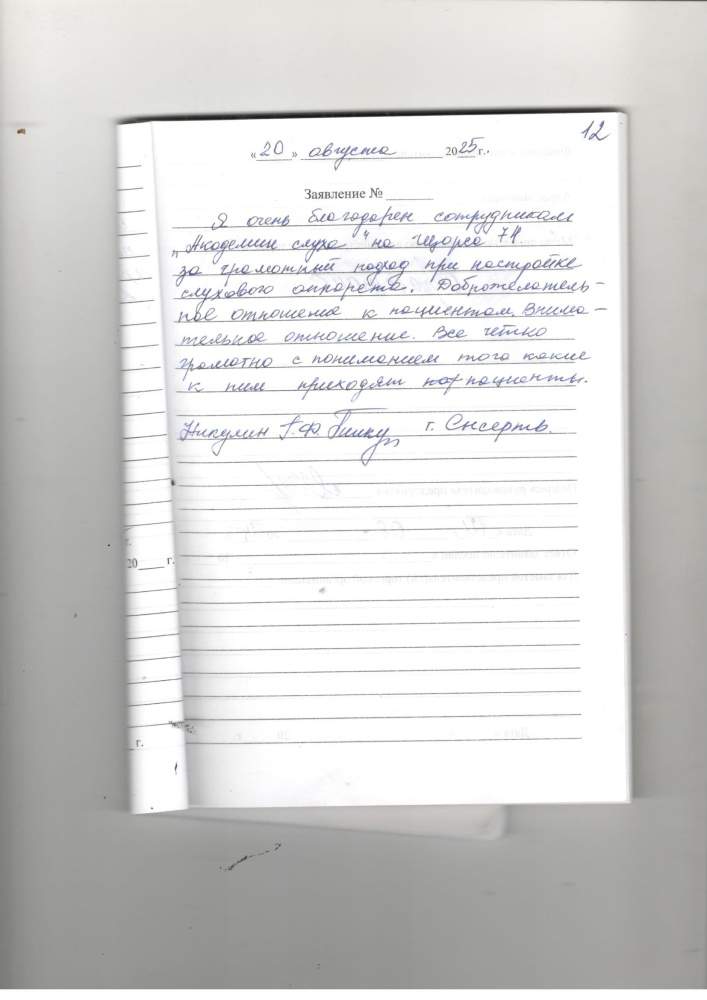 12
«20» августа 2025 г.
Заявление № ______
Я очень благодарен сотрудникам
„Академии слуха" на Щорса 74
за грамотный подход при настройке
слухового аппарата. Доброжелатель-
ное отношение к пациентам. Внима-
тельное отношение. Все чётко
грамотно с пониманием того какие
к ним приходят пациенты.
Никулин Г.Ф. г. Сысерть.
20____ г.
г.